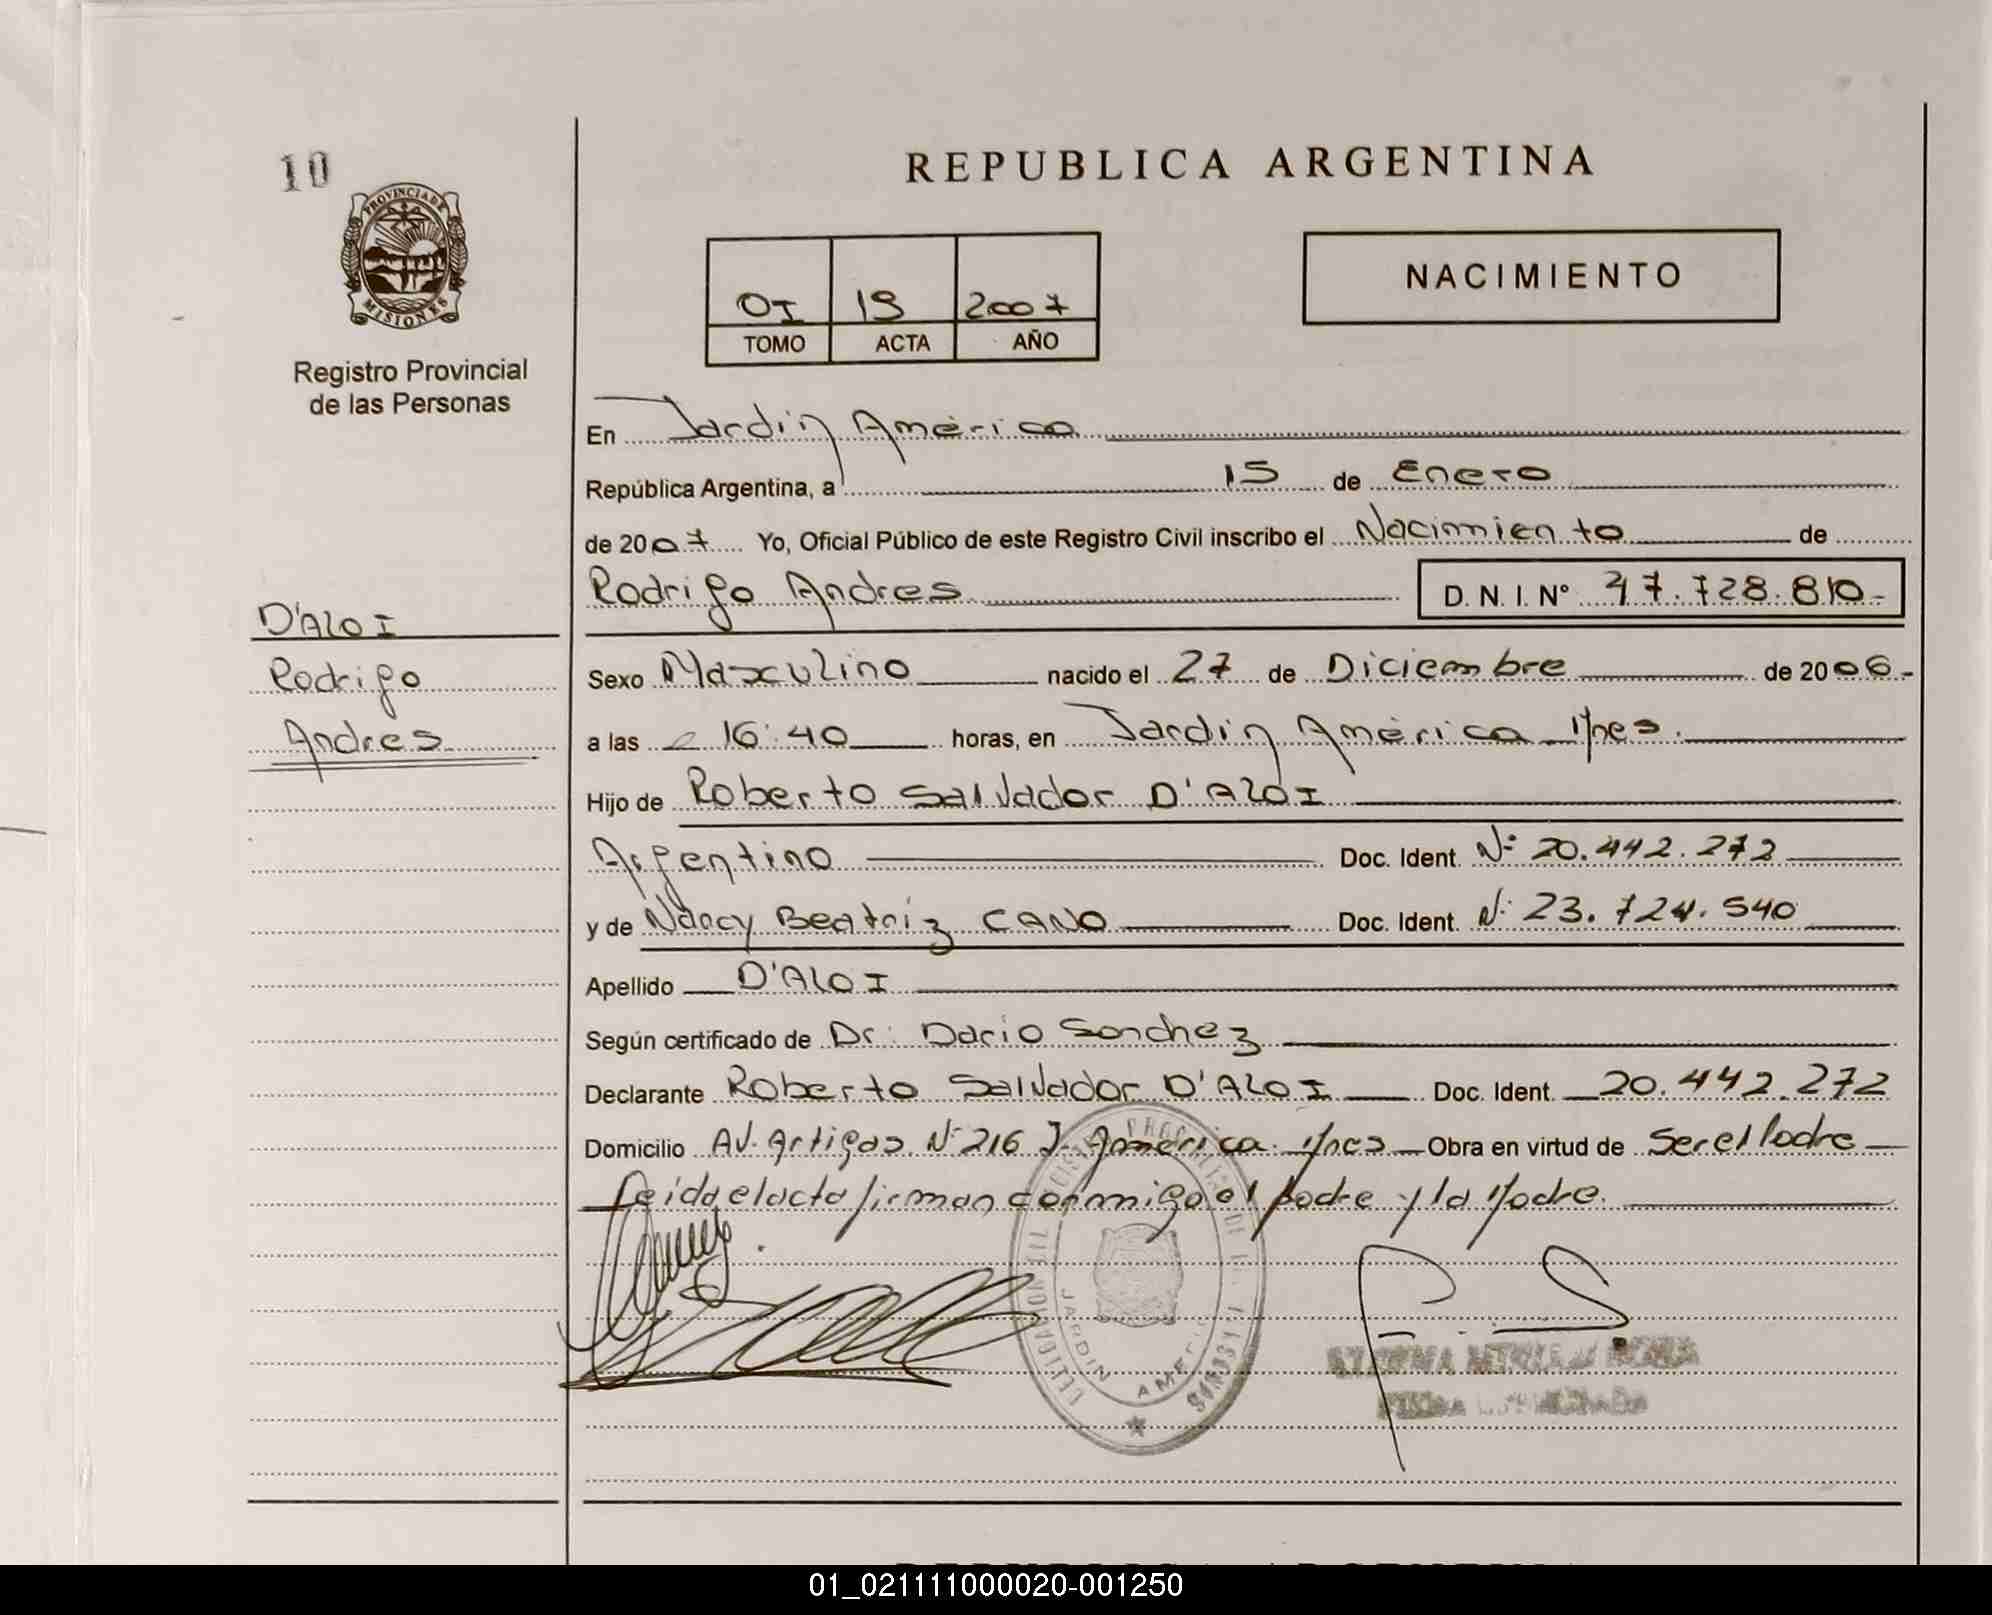 10
REPUBLICA ARGENTINA
PROVINCIA DE
MISIONES
Registro Provincial
de las Personas
OI 15 2007
TOMO ACTA AÑO
NACIMIENTO
En Jardin América
República Argentina, a 15 de Enero
de 2007 Yo, Oficial Público de este Registro Civil inscribo el Nacimiento de
Rodrigo Andres D. N. I. N° 47.728.810-
D'ALOI
Rodrigo
Andres
Sexo Masculino nacido el 27 de Diciembre de 2006-
a las 16:40 horas, en Jardin América Mnes.
Hijo de Roberto Salvador D'ALOI
Argentino Doc. Ident. N° 20.442.272
y de Nancy Beatriz CANO Doc. Ident. N° 23.724.540
Apellido D'ALOI
Según certificado de Dr: Dario Sanchez
Declarante Roberto Salvador D'ALOI Doc. Ident. 20.442.272
Domicilio AV. Artigas N° 216 J. América. Mnes Obra en virtud de ser el Padre
Leida el acta firman conmigo el padre y la Madre.
JARDIN AMERICA
01_021111000020-001250